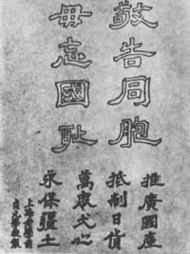 敬告同胞
毋忘國耻
推廣國產
抵制日貨
萬衆弌心
永保疆土
上海